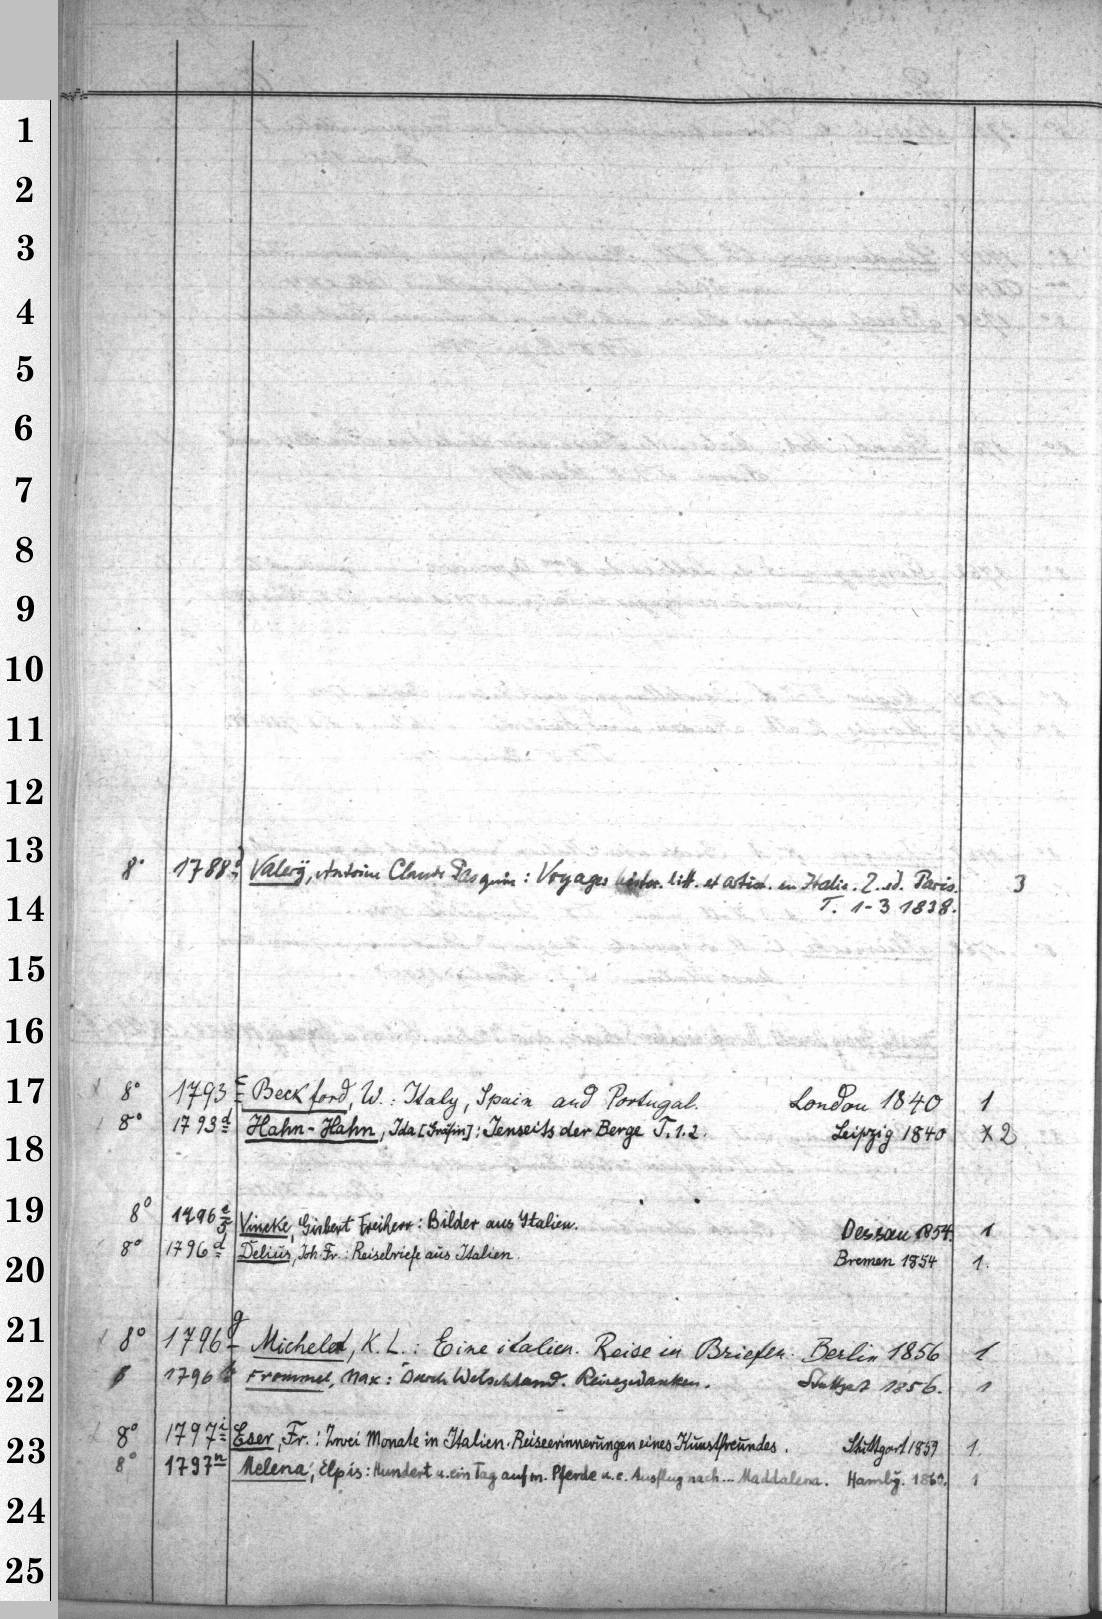 1
2
3
4
5
6
7
8
9
10
11
12
13
8° 1788 d Valerÿ, Antoine Claude Pasquin: Voyages histor. litt. et artist. en Italie. 2. ed. Paris. 3
14
T. 1-3 1838.
15
16
17
8° 1793 c Beckford, W.: Italy, Spain and Portugal. London 1840 1
8° 1793 d Hahn-Hahn, Ida [Gräfin]: Jenseits der Berge T. 1.2. Leipzig 1840 x 2
18
19
8° 1796 Vincke, Gisbert Freiherr: Bilder aus Italien. Dessau 1854. 1
8° 1796 d Delius, Joh. Fr.: Reisebriefe aus Italien. Bremen 1854 1.
20
21
8° 1796 g Michelet, K. L.: Eine italien. Reise in Briefen. Berlin 1856 1
1796 Frommel, Max: Durch Welschland. Reisegedanken. Stuttgat 1856. 1
22
8° 1797 i Eser, Fr.: Zwei Monate in Italien. Reiseerinnerungen eines Kunstfreundes. Stuttgart 1859 1.
23
8° 1797 n Melena, Elpis: Hundert u. ein Tag auf m. Pferde u. e. Ausflug nach... Maddalena. Hambg. 1860. 1
24
25